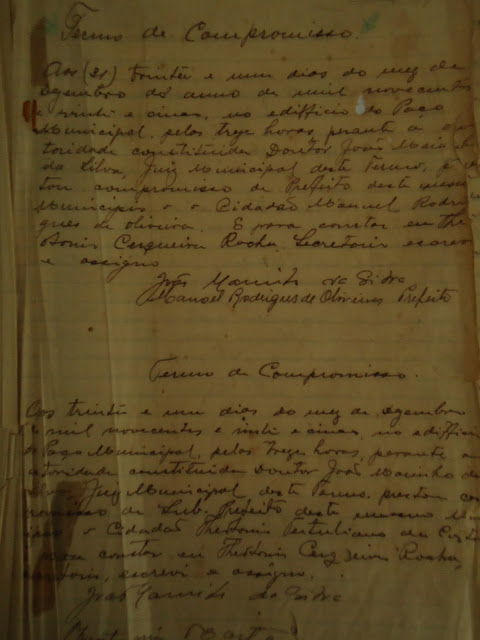 Termo de Compromisso.
Aos (31) trinta e um dias do mez de
Dezembro do anno de mil novecentos
e vinte e cinco, no edifficio do Paço
Municipal, pelas treze horas, perante a au
toridade constituida Doutor João Marinho
da Silva, Juiz Municipal deste Termo, p
tou compromisso de Prefeito deste mesmo
Municipio o Cidadão Manuel Rodri
gues de Oliveira. E para constar eu The
tonio Cerqueira Rocha, Secretario escrevi
e assigno
João Marinho da Silva
Manoel Rodrigues de Oliveira Prefeito
Termo de Compromisso.
Aos trinta e um dias do mez de dezembro
de mil novecentos e vinti e cinco, no edifficio
do Paço Municipal, pelas treze horas, perante a
autoridade constituida Doutor João Marinho da
Silva, Juiz Municipal deste Termo, prestou com
promisso de Sub. Prefeito deste mesmo Muni
cipio o Cidadão Theotonio Tertuliano da
para constar eu Theotonio Cerqueira Rocha,
escrevi e assigno.
João Marinho da Silva